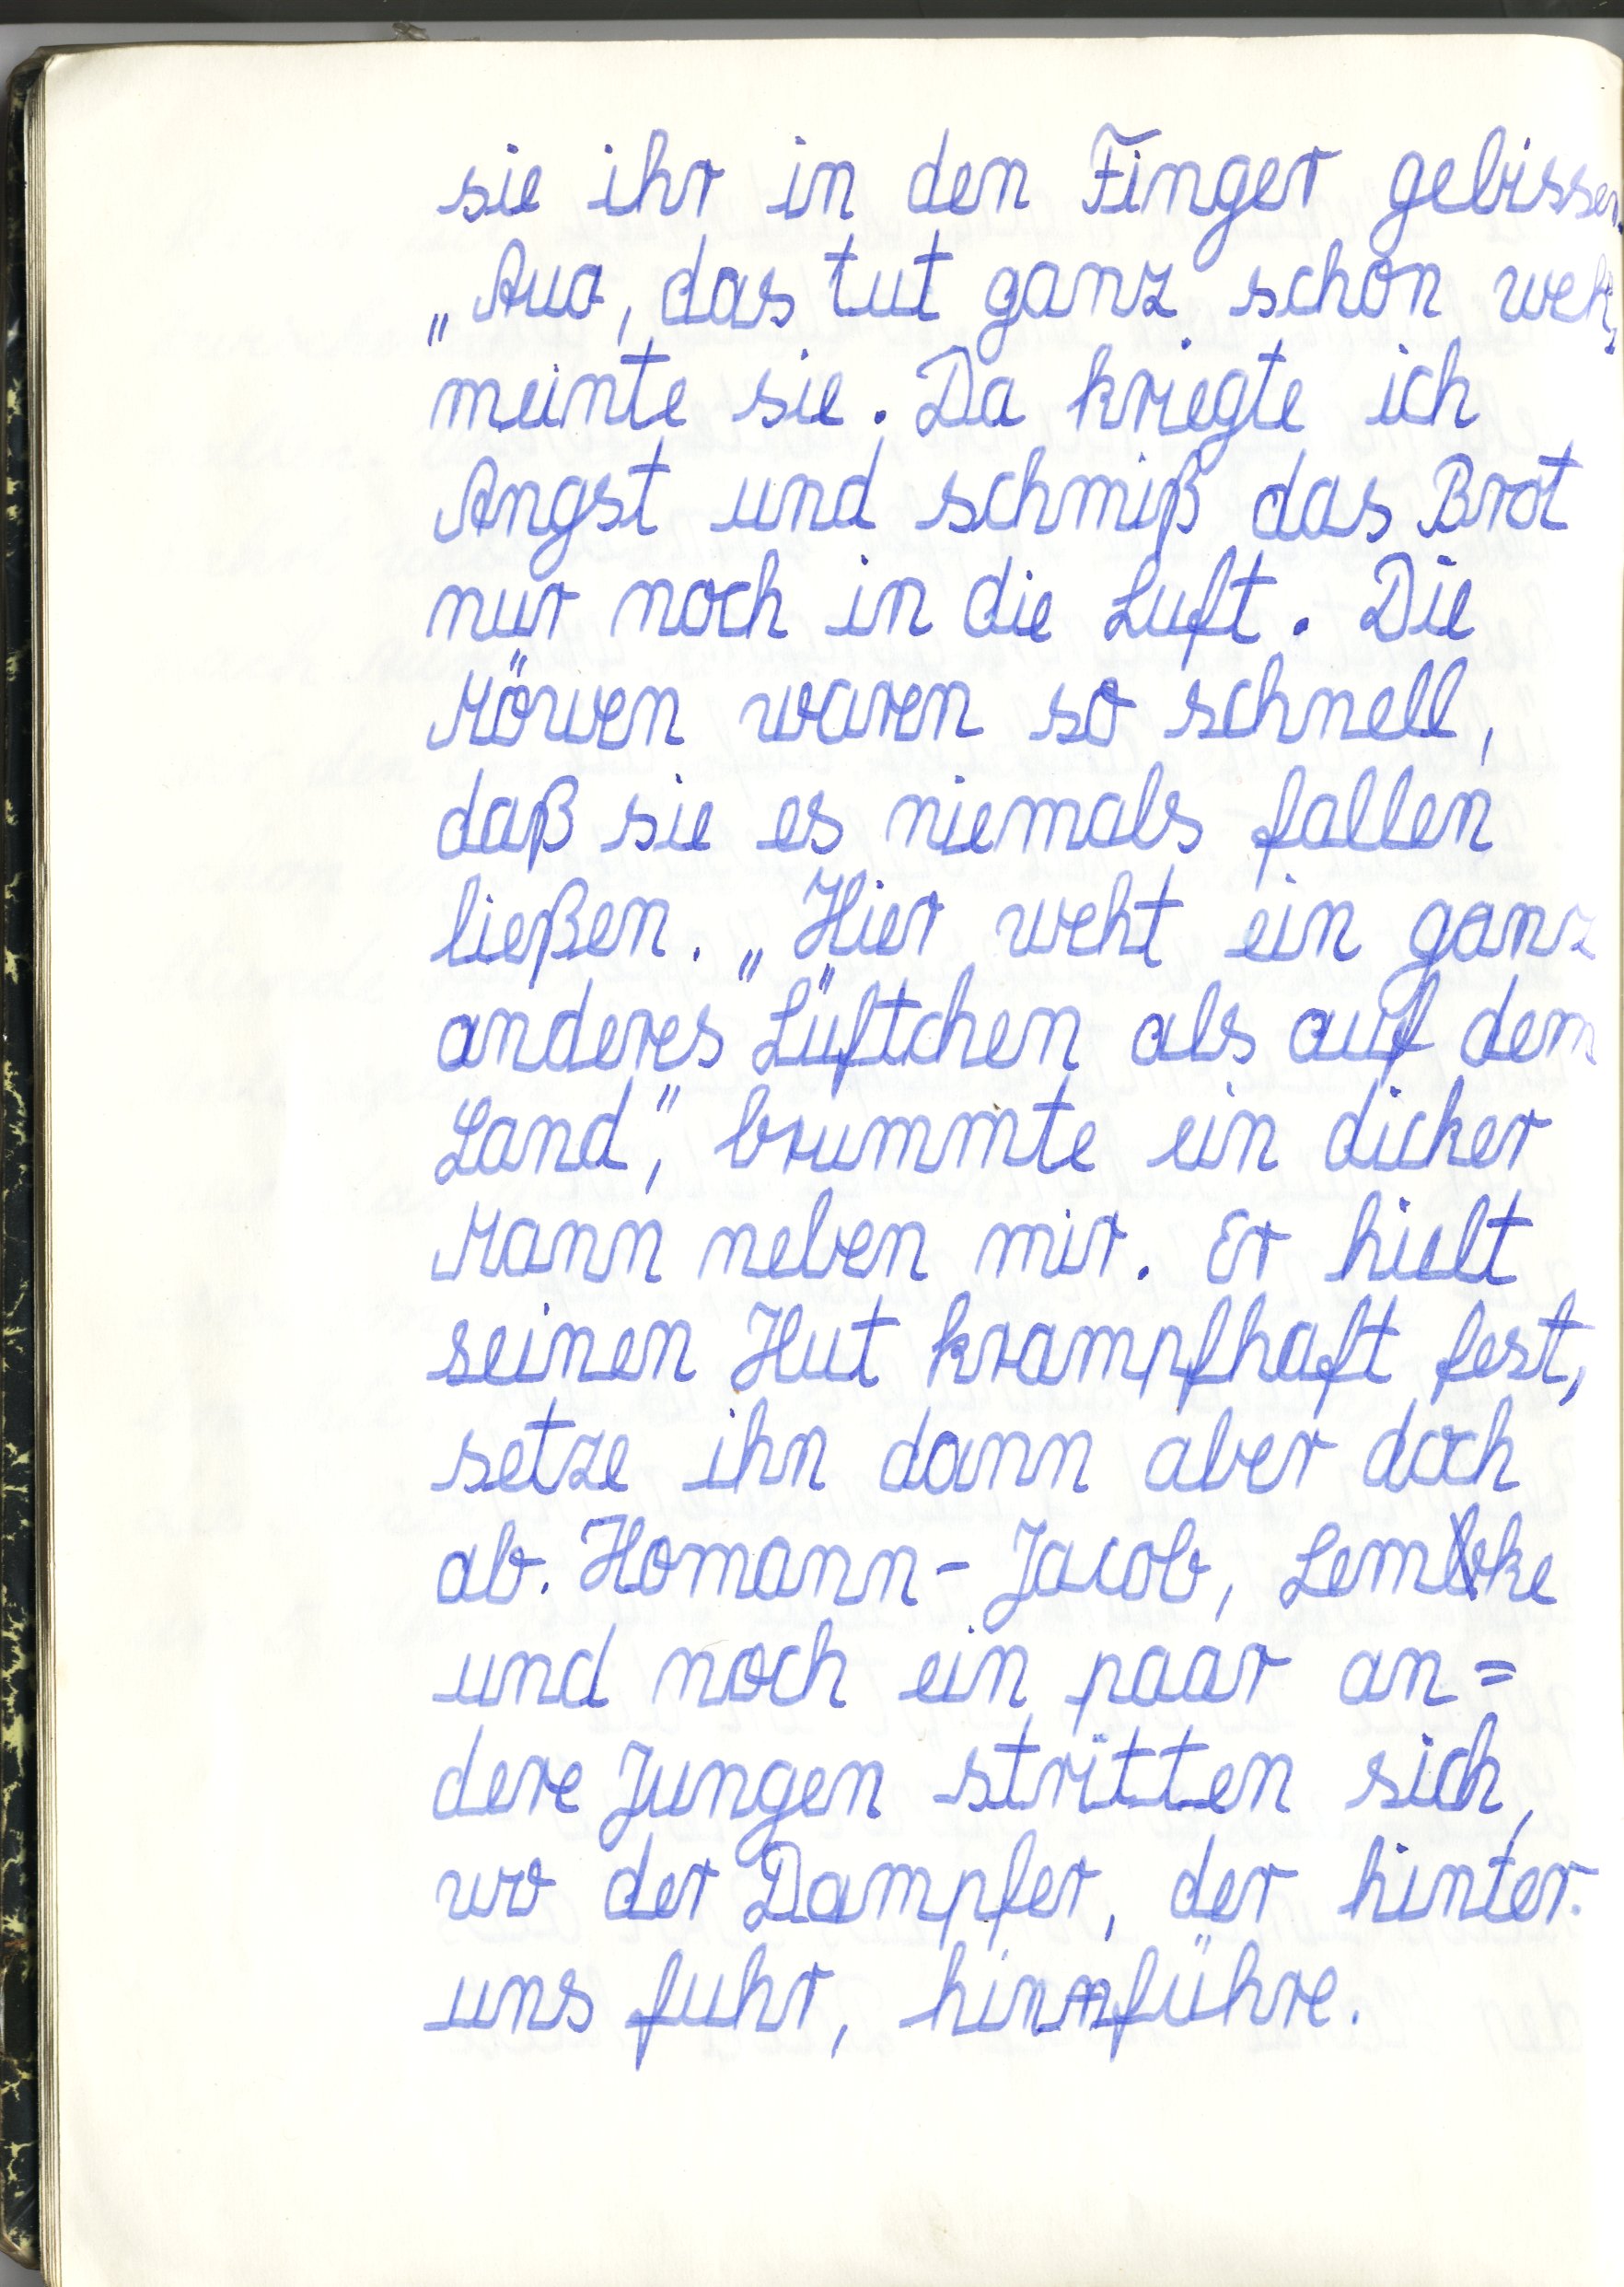 sie ihr in den Finger gebissen.
„Aua, das tut ganz schön weh,
meinte sie. Da kriegte ich
Angst und schmiß das Brot
nur noch in die Luft. Die
Möwen waren so schnell,
daß sie es niemals fallen
ließen. „Hier weht ein ganz
anderes Lüftchen als auf dem
Land," brummte ein dicker
Mann neben mir. Er hielt
seinen Hut krampfhaft fest,
setze ihn dann aber doch
ab. Homann-Jacob, Lemke
und noch ein paar an=
dere Jungen stritten sich,
wo der Dampfer, der hinter
uns fuhr, hinführe.